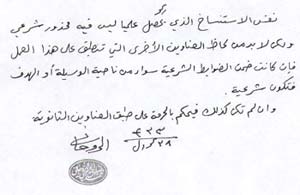 نفس الاستنساخ الذي يحصل علميا ليس فيه محذور شرعي
ولكن لا بد من لحاظ العناوين الأخرى التي تنطبق على هذا العمل
فإن كانت ضمن الضوابط الشرعية سواء من ناحية الوسيلة أو الهدف
فتكون شرعية .
وان لم تكن كذلك فيحكم بالحرمة على طبق العناوين الثانوية